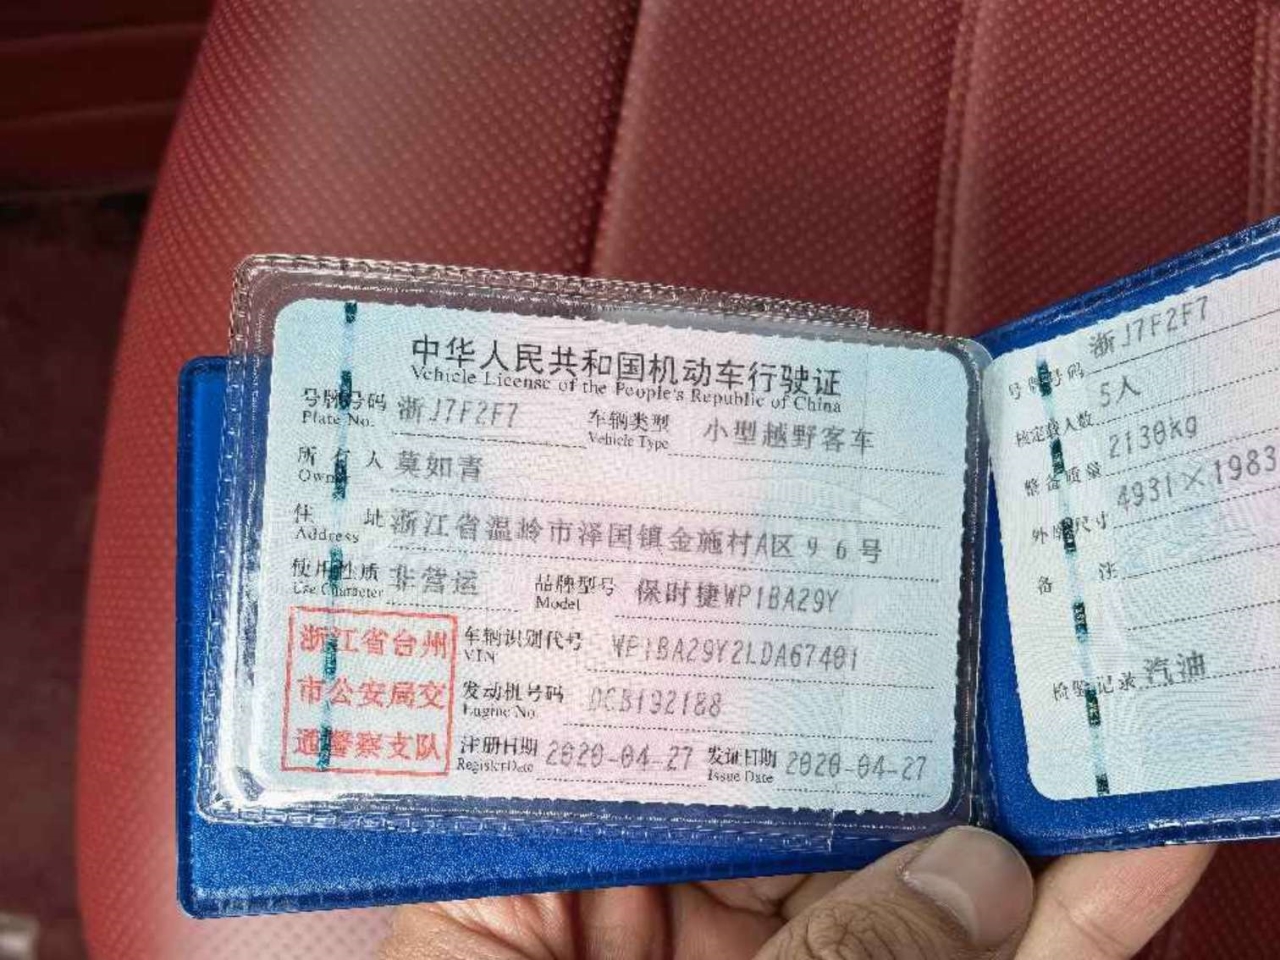 中华人民共和国机动车行驶证
Vehicle License of the People's Republic of China
号牌号码 浙J7F2F7 车辆类型 小型越野客车
Plate No. Vehicle Type
所有人 莫如青
Owner
住址 浙江省温岭市泽国镇金施村A区96号
Address
使用性质 非营运 品牌型号 保时捷WP1BA29Y
Use Character Model
浙江省台州
市公安局交
通警察支队
车辆识别代号 WP1BA29Y2LDA67401
VIN
发动机号码 DCB192188
Engine No.
注册日期 2020-04-27 发证日期 2020-04-27
Register Date Issue Date
号牌号码 浙J7F2F7
核定载人数 5人
整备质量 2130kg
外廓尺寸 4931×1983
备注
检验记录 汽油